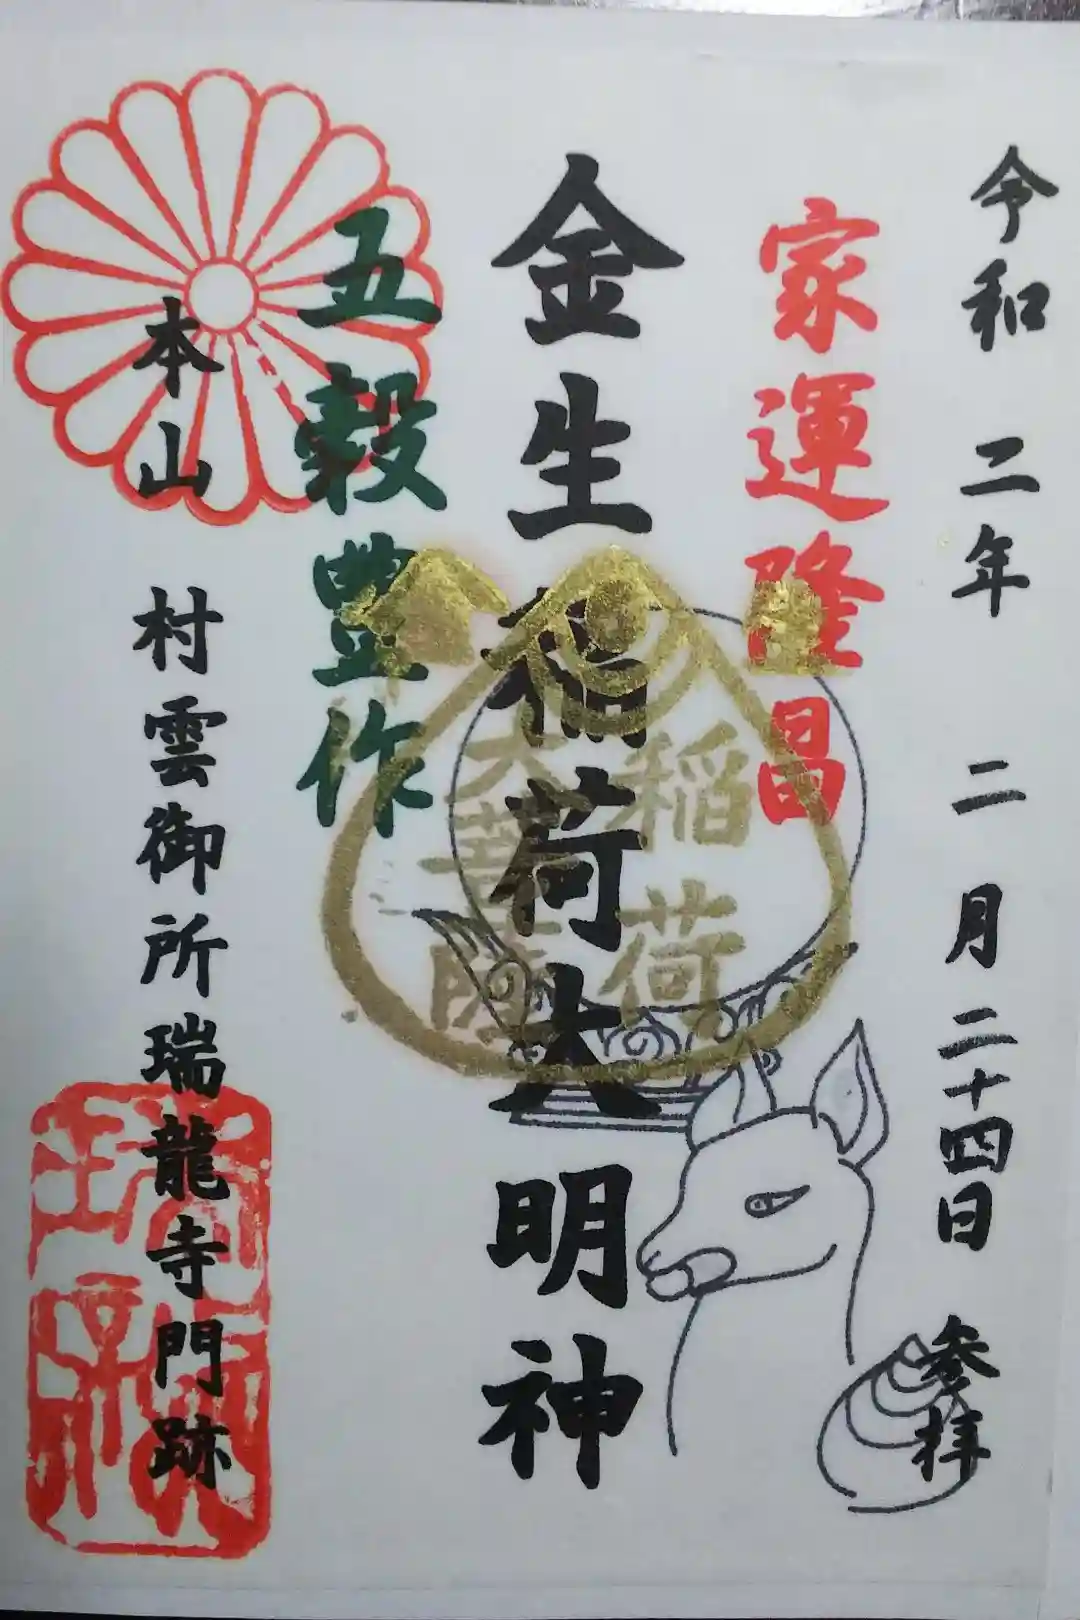 令和 二年 二月 二十四日 参拝
家運隆昌
金生稲荷大明神
稲荷
五穀豊作
本山 村雲御所瑞龍寺門跡